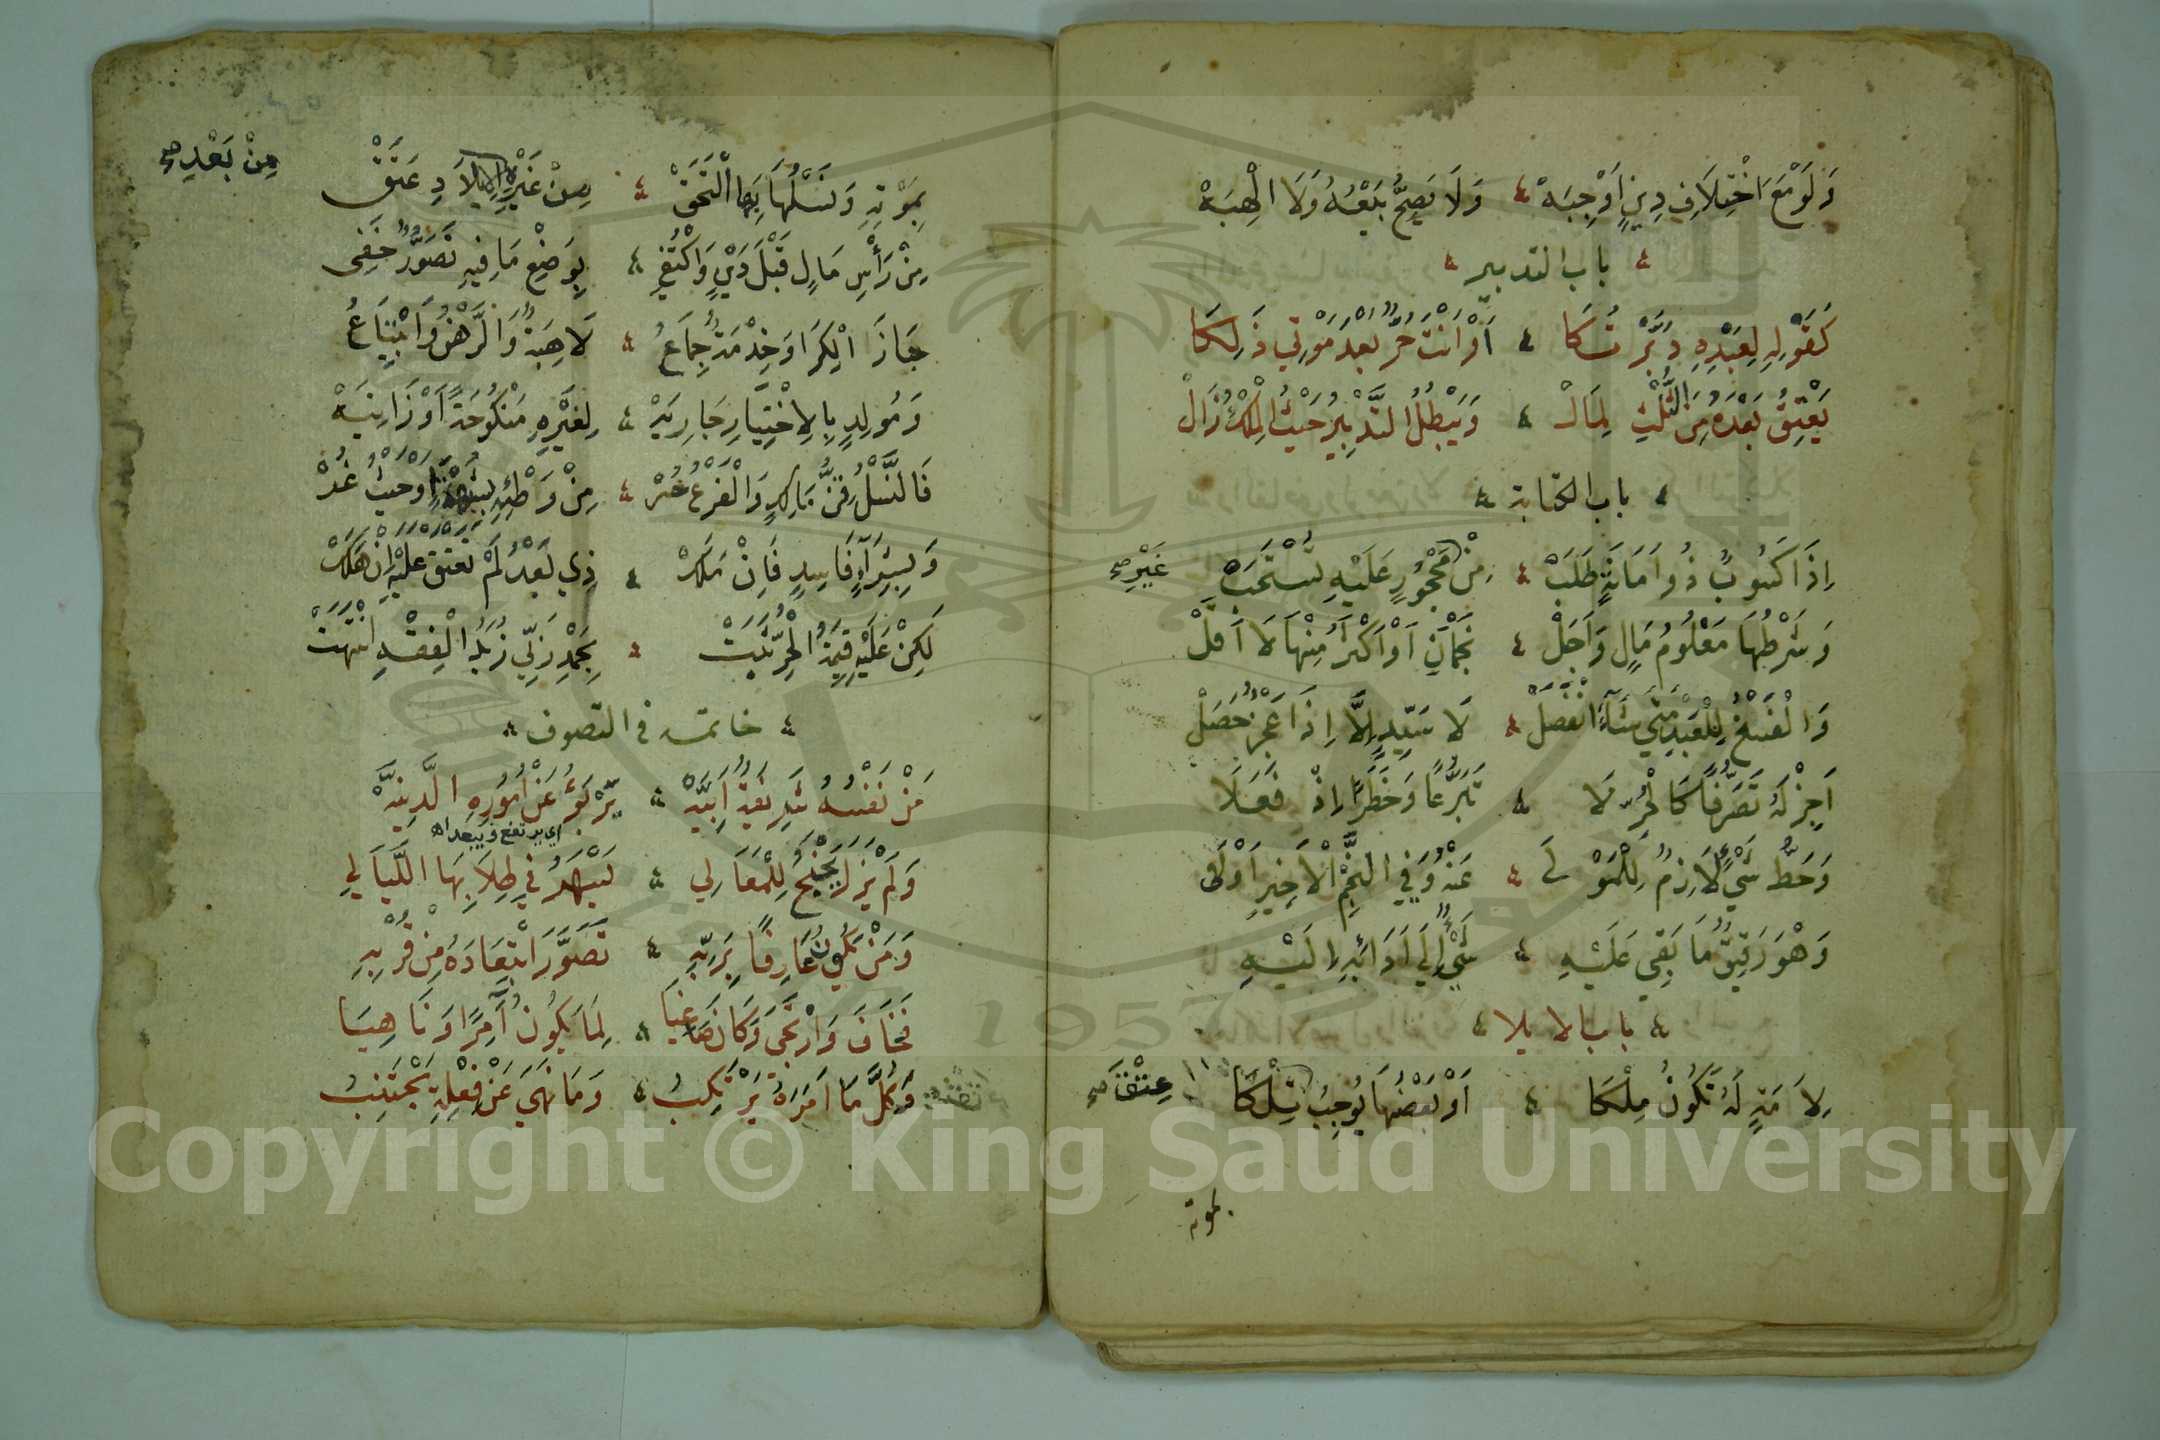 وَلَوْ مَعَ اخْتِلَافِ دِينٍ أَوْجَبَهْ ؞ وَلَا يَصِحُّ بَيْعُهُ وَلَا الْهِبَهْ
باب التدبير
كَقَوْلِهِ لِعَبْدِهِ دَبَّرْتُكَا ؞ أَوْ أَنْتَ حُرٌّ بَعْدَ مَوْتِي ذَلِكَا
يَعْتِقُ بَعْدَهُ مِنَ الثُّلْثِ لِمَالْ ؞ وَيَبْطُلُ التَّدْبِيرُ حَيْثُ الْمِلْكُ زَالْ
باب الكتابة
إِذَا كَسُوبٌ ذُو أَمَانَةٍ طَلَبْ ؞ مِنْ مَحْجُورٍ عَلَيْهِ تُسْتَحَبْ غَيْرِ صح
وَشَرْطُهَا مَعْلُومُ مَالٍ وَأَجَلْ ؞ نَجْمَانِ أَوْ أَكْثَرُ مِنْهَا لَا أَقَلْ
وَالْفَسْخُ لِلْعَبْدِ مَتَى شَاءَ انْفَصَلْ ؞ لَا سَيِّدٍ إِلَّا إِذَا عَجْزٌ حَصَلْ
أَجِزْ لَهُ تَصَرُّفًا كَالْحُرِّ لَا ؞ تَبَرُّعًا وَخَطَرًا إِذْ فَعَلَا
وَحَطُّ شَيْءٍ لَازِمٌ لِلْمَوْلَى ؞ عَنْهُ وَفِي النَّجْمِ الْأَخِيرِ أَوْلَى
وَهْوَ رَقِيقٌ مَا بَقِي عَلَيْهِ ؞ شَيْءٌ إِلَى أَدَائِهِ إِلَيْهِ
باب الايلا
لِأَمَةٍ لَهُ تَكُونُ مِلْكَا ؞ أَوْ بَعْضُهَا يُوجِبُ تِلْكَا عِتْقَ صح
بموته
بِمَوْتِهِ وَنَسْلُهَا بِهَا الْتَحَقْ ؞ مِنْ غَيْرِهِ الْإِيلَادِ عَتَقْ مِنْ بَعْدِ صح
مِنْ رَأْسِ مَالٍ قَبْلَ دَيْنٍ وَاكْتُفِي ؞ بِوَضْعِ مَا فِيهِ تَصَوُّرٌ خَفِي
جَازَ الْكِرَا وَخِدْمَةٌ جِمَاعُ ؞ لَا هِبَةٌ وَالرَّهْنُ وَابْتِيَاعُ
وَمُولِدٍ بِالِاخْتِيَارِ جَارِيَهْ ؞ لِغَيْرِهِ مَنْكُوحَةً أَوْ زَانِيَهْ
فَالنَّسْلُ قِنُّ مَالِكٍ وَالْفَرْعُ حُرْ ؞ مِنْ وَطْئِهِ بِشُبْهَةٍ أَوْ حَيْثُ غُرْ
وَبِشِرَاءٍ فَاسِدٍ فَإِنْ مَلَكْ ؞ ذِي بَعْدُ لَمْ تَعْتَقْ عَلَيْهِ إِنْ هَلَكْ
لَكِنْ عَلَيْهِ قِيمَةُ الْحُرِّ ثَبَتْ ؞ بِحَمْدِ رَبِّي زُبَدُ الْفِقْهِ انْتَهَتْ
خاتمه في التصوف
مَنْ نَفْسُهُ شَرِيفَةٌ أَبِيَّهْ ؞ يَرْبَؤُ عَنْ أُمُورِهِ الدَّنِيَّهْ
اي يرتفع ويبعد اه
وَلَمْ يَزَلْ يَجْنَحُ لِلْمَعَالِي ؞ يَسْهَرُ فِي طِلَابِهَا اللَّيَالِي
وَمَنْ يَكُونُ عَارِفًا بِرَبِّهِ ؞ تَصَوَّرَ ابْتِعَادَهُ مِنْ قُرْبِهِ
فَخَافَ وَارْتَجَى وَكَانَ صَاغِيَا ؞ لِمَا يَكُونُ آمِرًا وَنَاهِيَا
وَكُلَّ مَا أَمَرَهُ يَرْتَكِبُ ؞ وَمَا نَهَى عَنْ فِعْلِهِ يَجْتَنِبُ
Copyright © King Saud University
1957